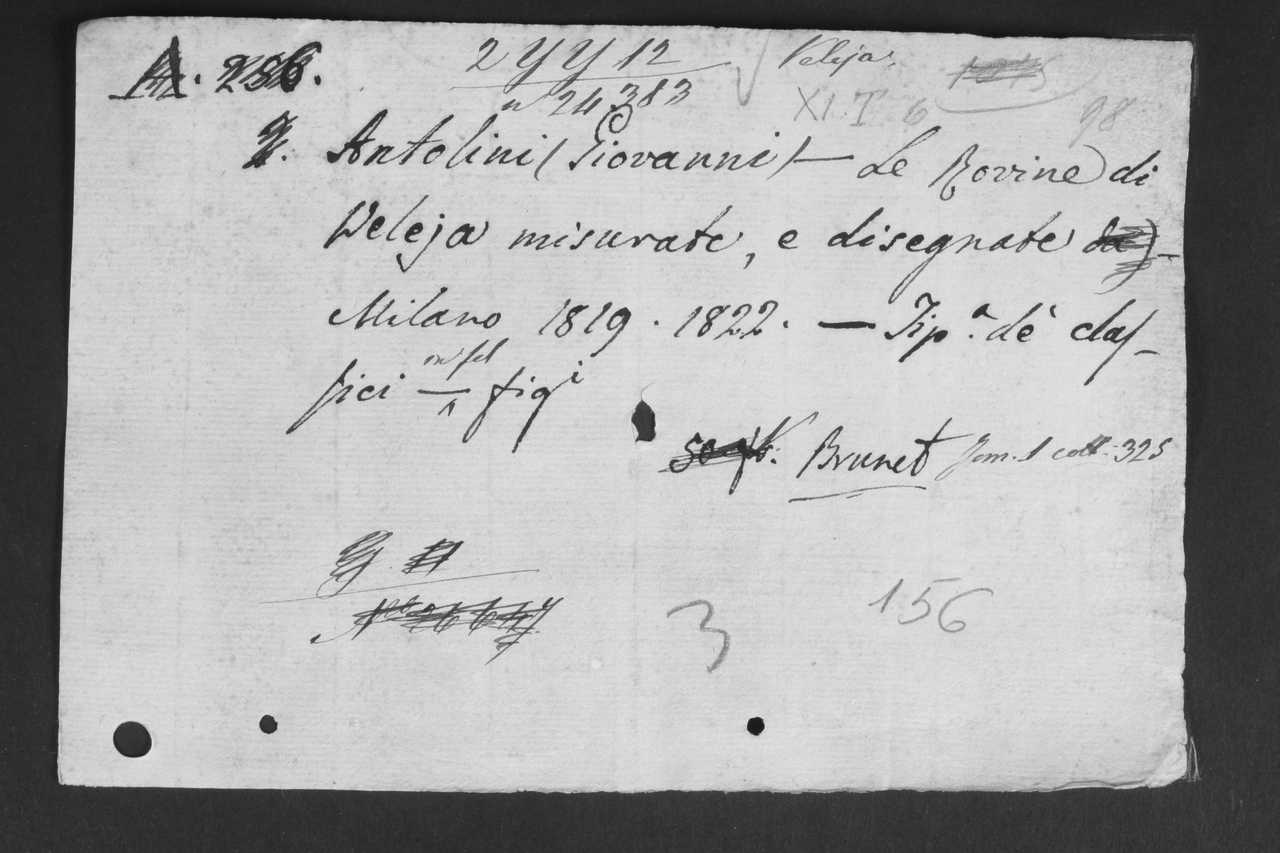 A. 256.
2 YY 12
Veleja.
n 24383
XI. T. 6
98
Antolini (Giovanni) — Le Rovine di
Veleja misurate, e disegnate da) -
Milano 1819. 1822. — Tip.a de' claſ-
ſici — in fol figi
Brunet Tom. 1 coll. 325
3
156